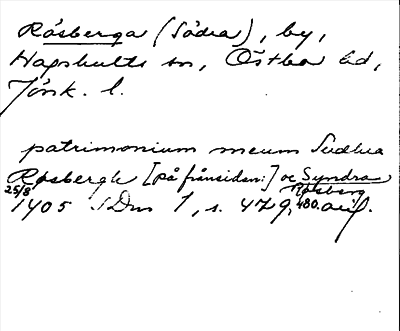 Råsberga (Södra), by,
Hagshults sn, Östbo hd,
Jönk. l.
patrimonium meum Sudhra
Rasbergh [på frånsidan:] oc Syndra
Røsberg
25/8
1405 SDns 1, s. 479, 480. avs.